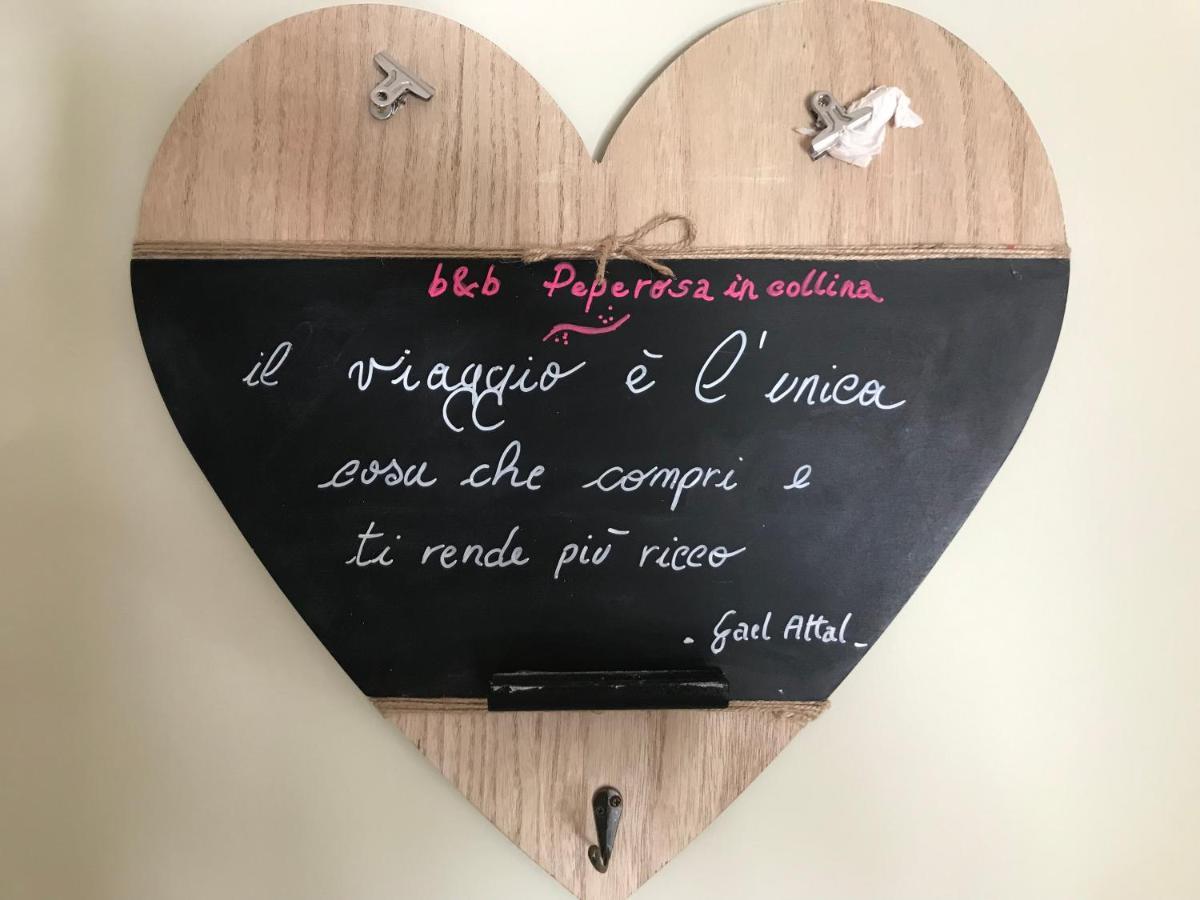 b&b Peperosa in collina
il viaggio è l'unica
cosa che compri e
ti rende più ricco
. Gael Attal -